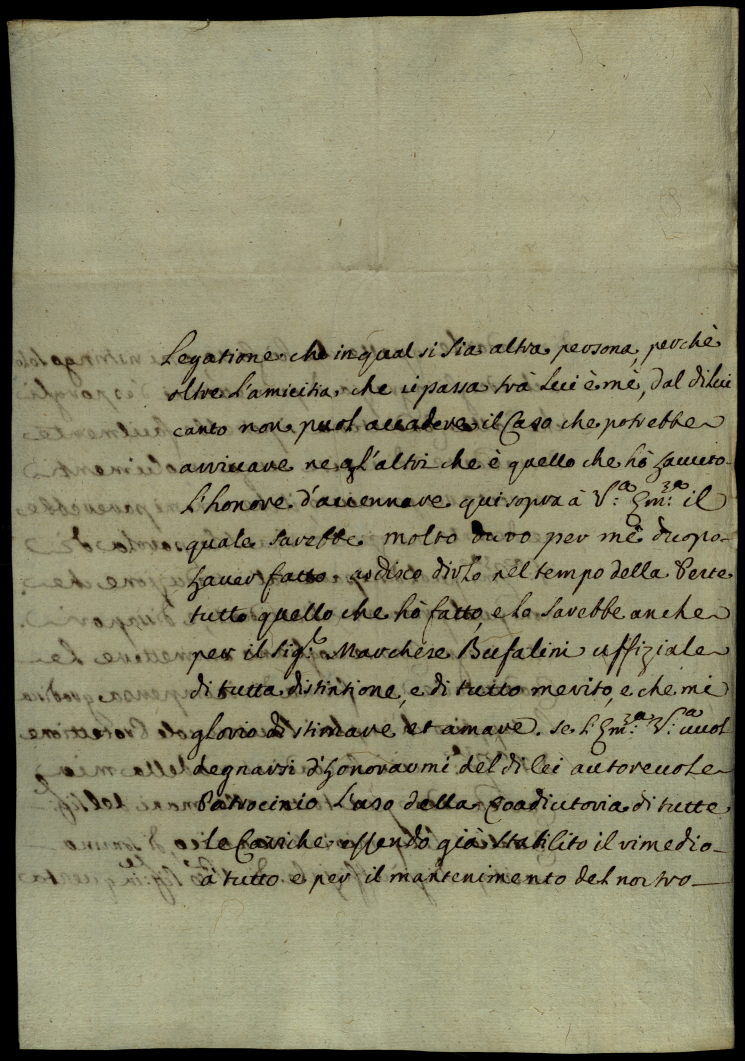 Legatione che in qual si sia altra persona, perchè
oltre l'amicitia che ci passa trà lui è mè, dal di lui
canto non puol accadere il Caso che potrebbe
arrivare ne gl'altri che è quello che hò hauuto
l'honore d'accennare qui sopra à V.ª Em.ª il
quale sarebbe molto duro per mè duopo
hauer fatto ardisco dirlo nel tempo della Peste
tutto quello che hò fatto, e lo sarebbe anche
per il Sig.r Marchese Bufalini uffiziale
di tutta distintione, e di tutto merito, e che mi
glorio di stimare et amare. se l'Em.ª V.ª vuol
degnarsi d'honorarmi del di lei autoreuole
Patrocinio l'aso della Coadiutoria di tutte
le Cariche essendo già stabilito il rimedio
à tutto e per il mantenimento del nostro